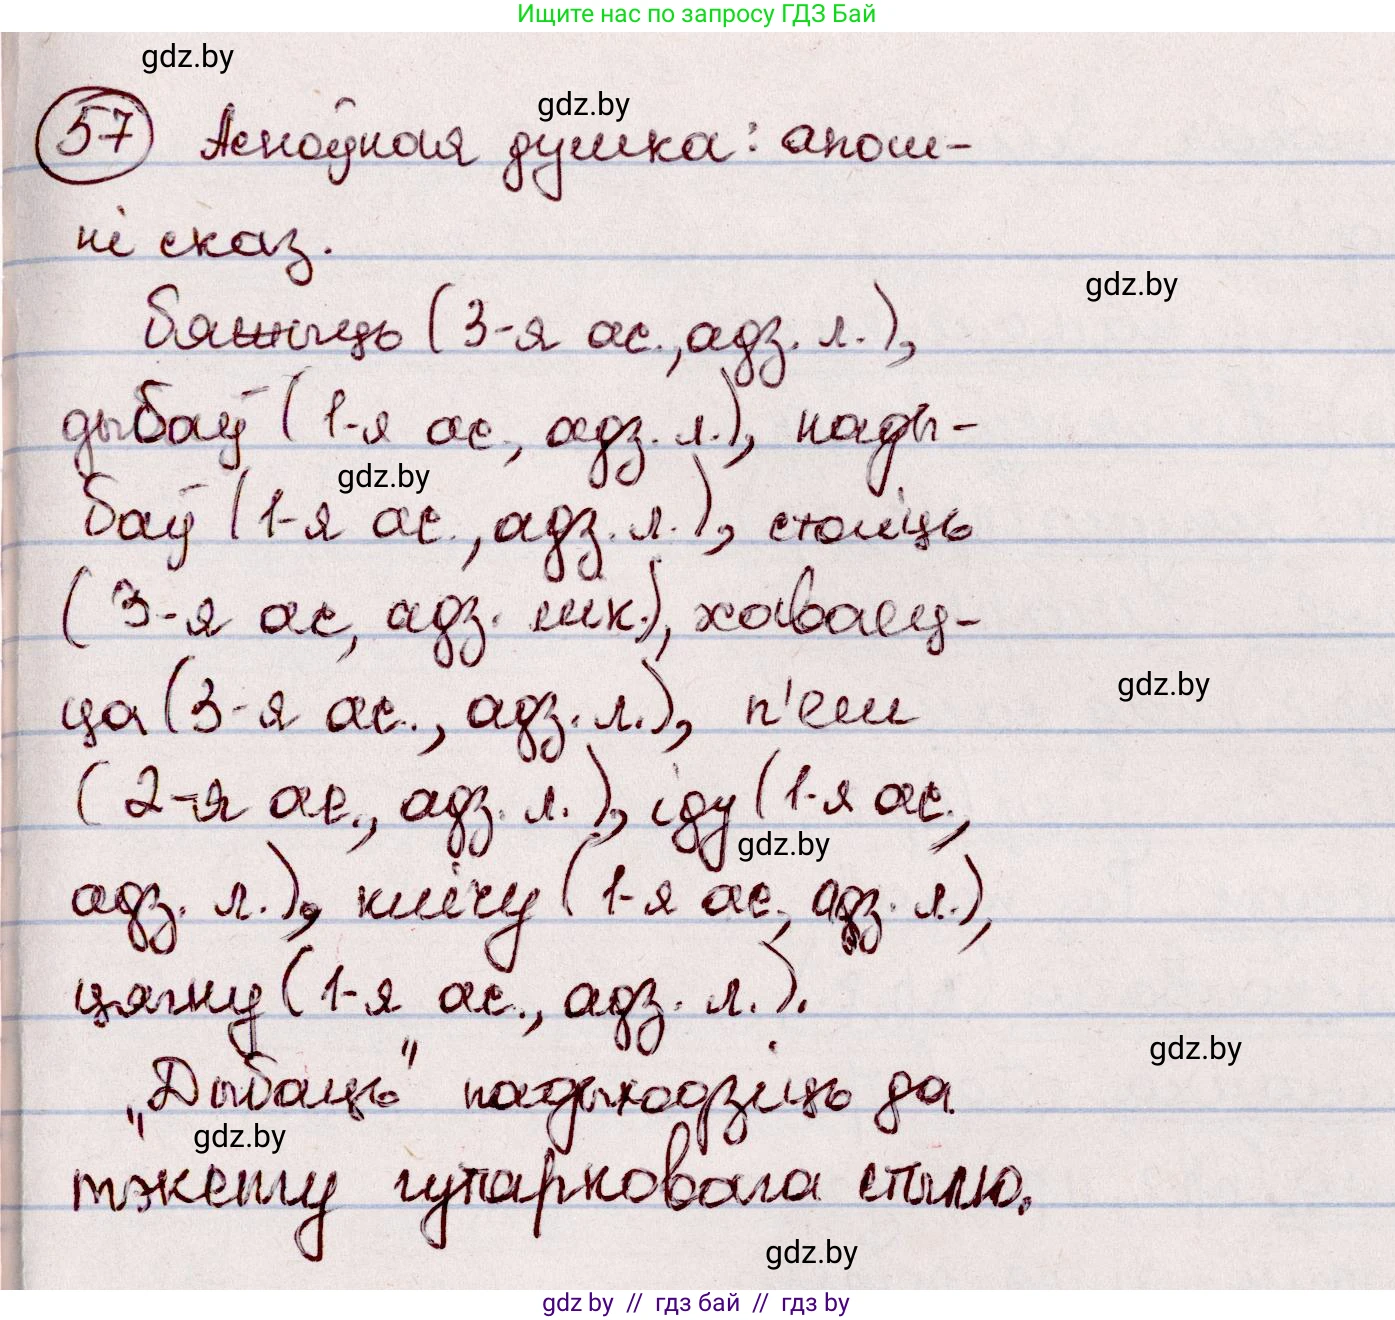 Ищите нас по запросу ГДЗ Бай
gdz.by
gdz.by
57 Асноўная думка: апош-
ні сказ.
gdz.by
бяжыць (3-я ас., адз. л.),
дыбаў (1-я ас., адз. л.), нады-
gdz.by
баў (1-я ас., адз. л.), стаіць
(3-я ас, адз. лік.), хаваец-
gdz.by
ца (3-я ас., адз. л.), п'еш
(2-я ас., адз. л.), іду (1-я ас.,
gdz.by
адз. л.), клічу (1-я ас., адз. л.),
цягну (1-я ас., адз. л.).
gdz.by
„Дыбаць" падыходзіць да
gdz.by
тэксту гутарковага стылю.
gdz.by
gdz by // гдз бай // гдз by